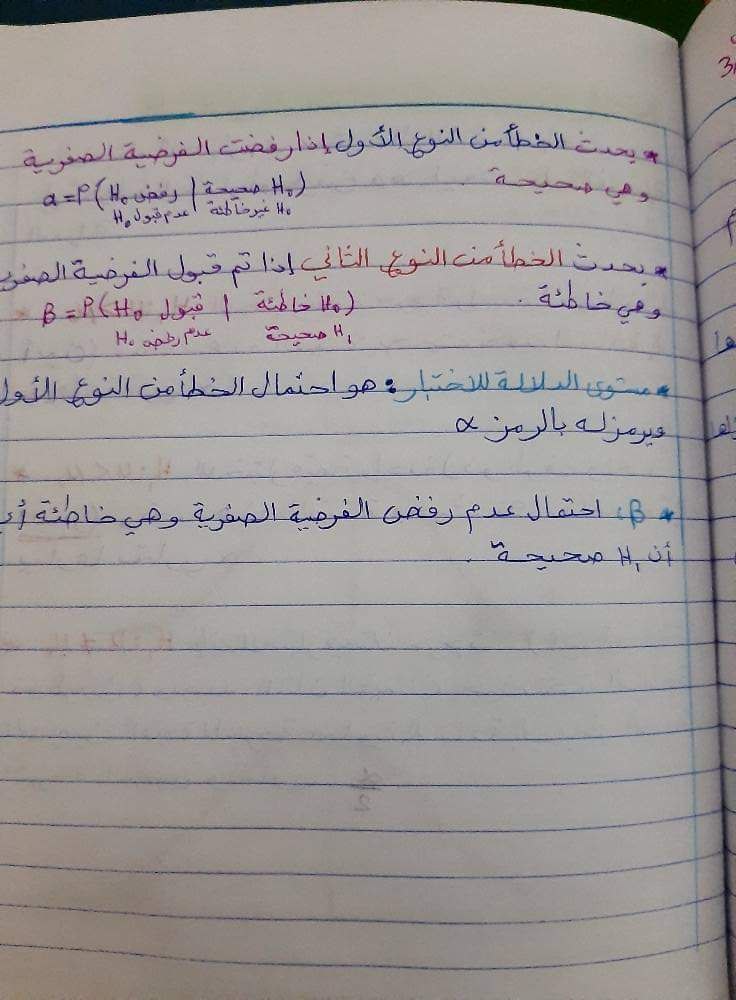 * يحدث الخطأ من النوع الأول إذا رفضت الفرضية الصفرية
وهي صحيحة.
α = P(H₀ رفض | H₀ صحيحة)
H₀ عدم قبول H₀ غير خاطئة
* يحدث الخطأ من النوع الثاني إذا تم قبول الفرضية الصفر
وهي خاطئة.
β = P(H₀ قبول | H₀ خاطئة)
H₀ عدم رفض H₁ صحيحة
* مستوى الدلالة للاختبار: هو احتمال الخطأ من النوع الأول
ويرمز له بالرمز α
* β: احتمال عدم رفض الفرضية الصفرية وهي خاطئة أي
أن H₁ صحيحة.